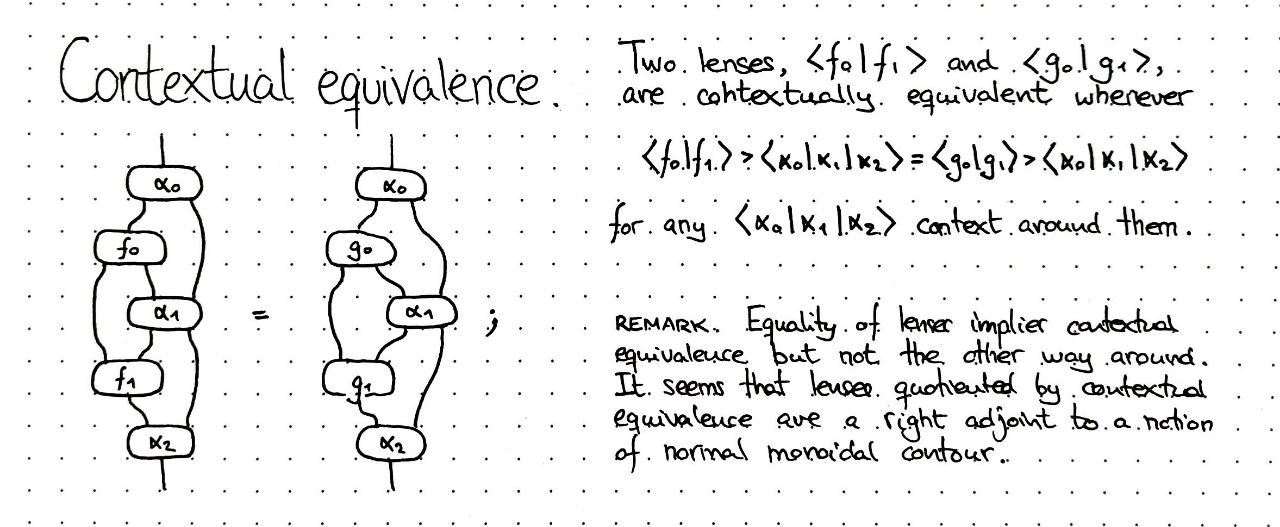 Contextual equivalence.
α₀
f₀
α₁
f₁
α₂
=
α₀
g₀
α₁
g₁
α₂
;
Two lenses, <f₀|f₁> and <g₀|g₁>,
are contextually equivalent whenever
<f₀|f₁> > <α₀|α₁|α₂> = <g₀|g₁> > <α₀|α₁|α₂>
for any <α₀|α₁|α₂> context around them.
REMARK. Equality of lenses implies contextual
equivalence but not the other way around.
It seems that lenses quotiented by contextual
equivalence are a right adjoint to a notion
of normal monoidal contour.